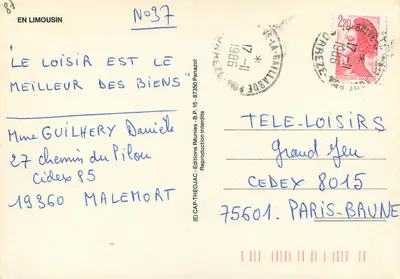 81
EN LIMOUSIN
N°97
"LE LOISIR EST LE
MEILLEUR DES BIENS"
Mme GUILHERY Danièle
27 chemin du Pilou
Cidex 85
19360 MALEMORT
(E) CAP-THEOJAC - Editions Réunies - B.P. 15 - 87350 Panazol
Reproduction interdite
17 -11
1986
2,20
17 -11
1986
TELE-LOISIRS
Grand Jeu
CEDEX 8015
75601. PARIS-BRUNE